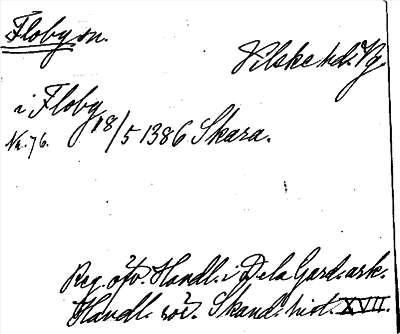 Floby sn.
Vilske hd. Vg.
i Floby 18/5 1386 Skara.
Na. 76.
Reg. öfv. Handl. i Dela Gard. ark.
Handl. rör. Skand. hist. XVII.